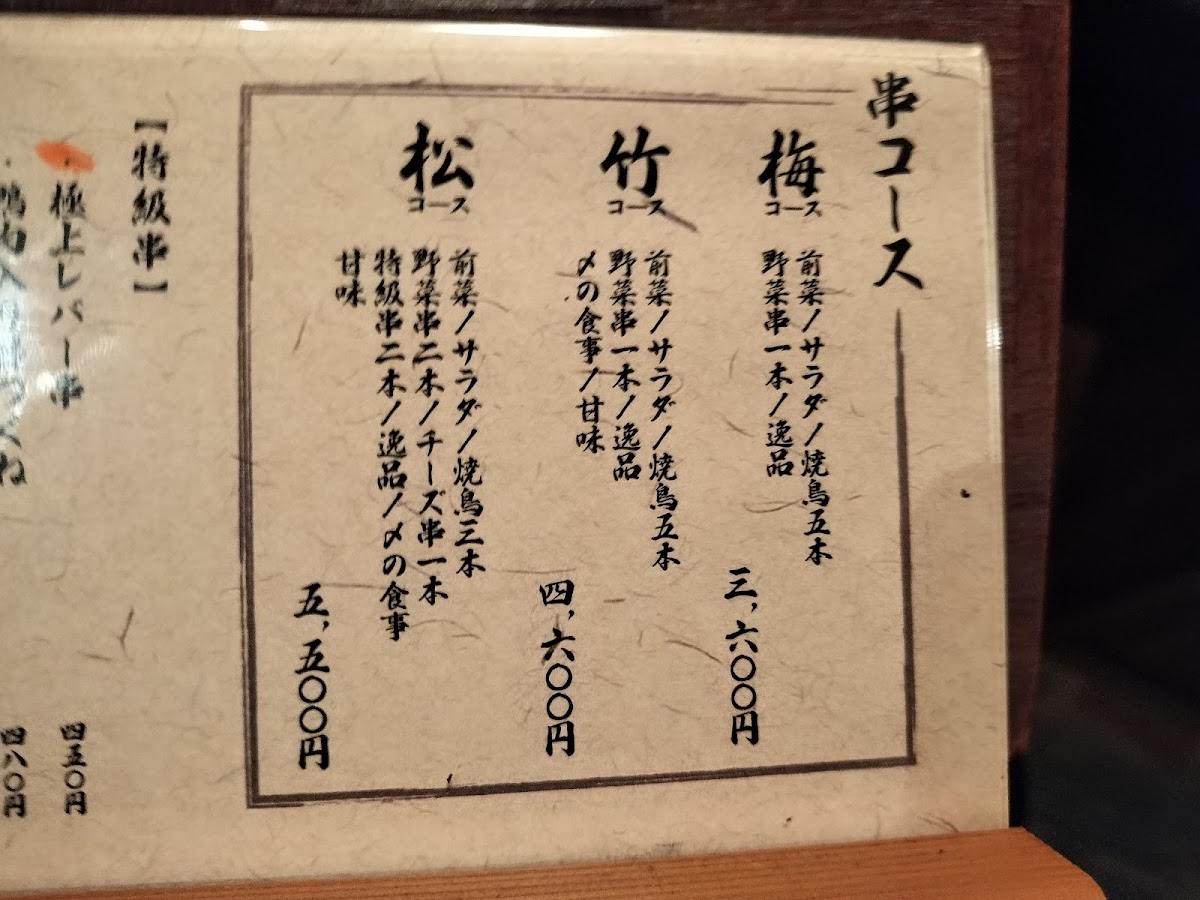 串コース
梅
コース
前菜/サラダ/焼鳥五本
野菜串一本/逸品
三,六〇〇円
竹
コース
前菜/サラダ/焼鳥五本
野菜串一本/逸品
〆の食事/甘味
四,六〇〇円
松
コース
前菜/サラダ/焼鳥三本
野菜串二本/チーズ串一本
特級串二本/逸品/〆の食事
甘味
五,五〇〇円
【特級串】
・極上レバー串
四五〇円
四八〇円